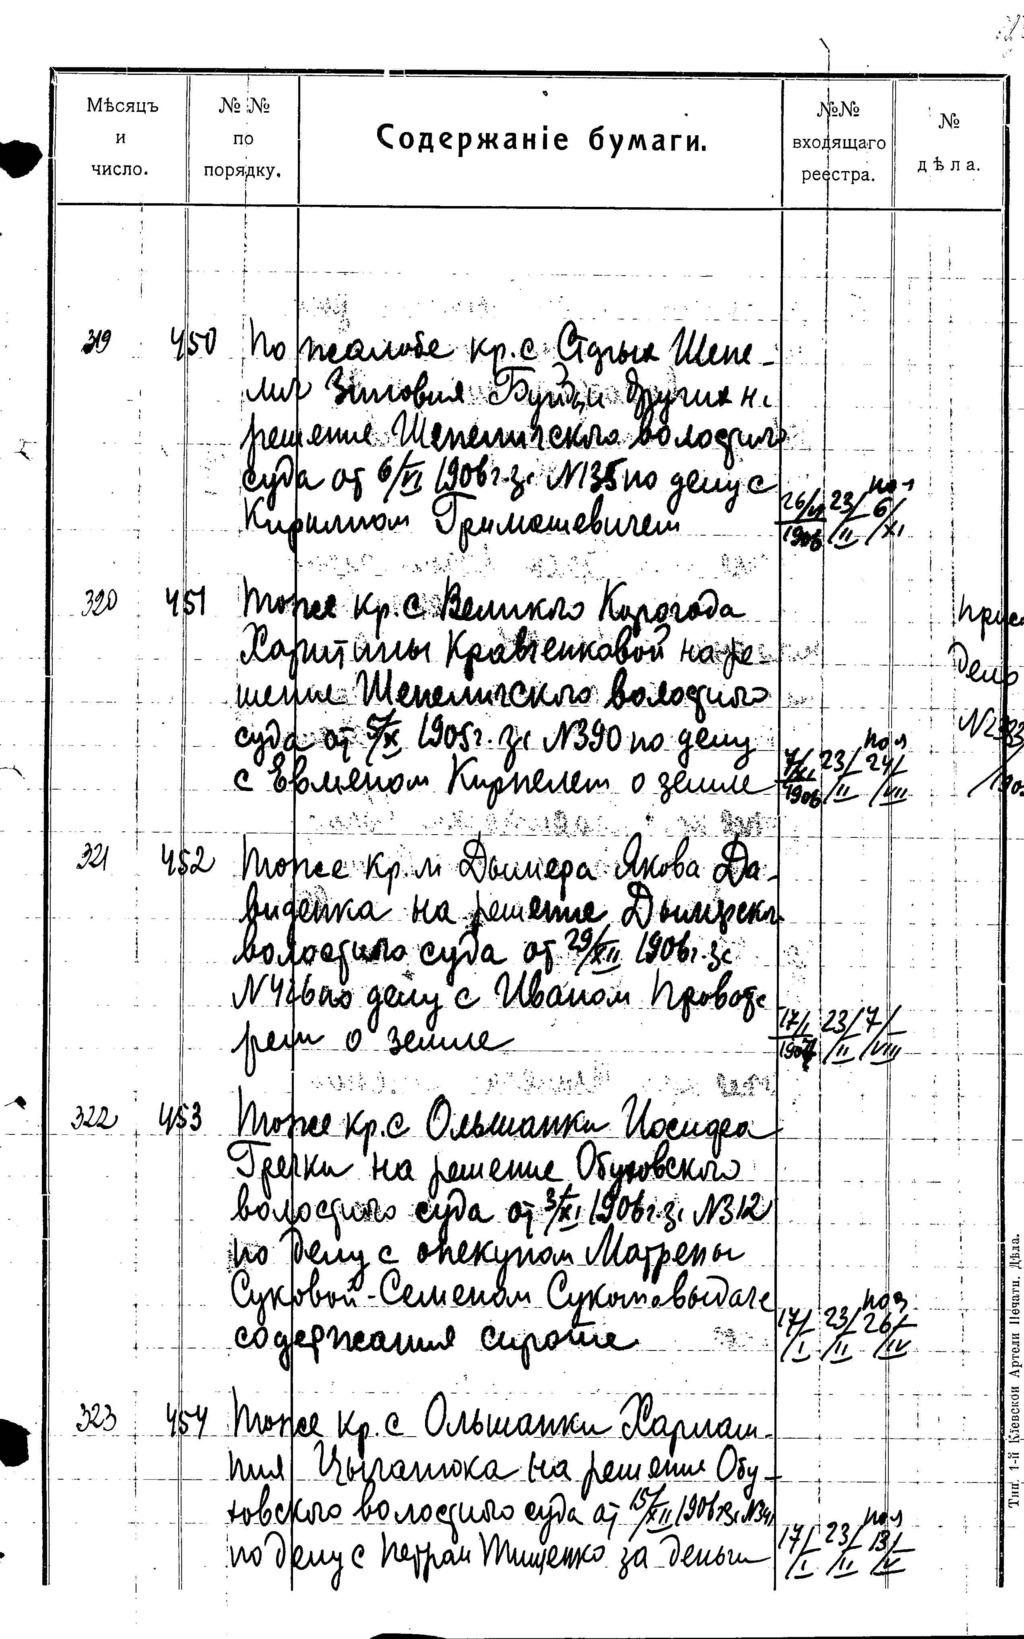 Мѣсяцъ и число.
№ № по порядку.
Содержаніе бумаги.
№№ входящаго реестра.
№ дѣла.
319 450 По жалобе кр. с. Старых Шепе-
лич Зиновия и других на
решение Шепеличского волостного
суда от 6/VI 1906 г. за N135 по делу с
Кириллом Тримашевичем
26/VI 1906 23/II пол 6/XI
320 451 Тоже кр. с Великого Корогода
Харитины Кравченковой на ре-
шение Шепеличского волостного
суда от 5/XI 1905 г. за N390 по делу
с Евменом Кирпелем о земле
7/XI 1906 23/II пол 24/VIII
Дело
321 452 Тоже кр. м Дымера Якова Да-
виденка на решение Дымерского
волостного суда от 29/XII 1906 г. за
N426 по делу с Иваном
о земле
17/I 1907 23/II 7/VIII
322 453 Тоже кр. с Ольшанки Иосифа
Гречки на решение Обуховского
волостного суда от 3/XI 1906 г. за N312
по делу с опекуном Матрены
Суковой - Семеном Суком о выдаче
содержания сироте
17/I 23/II пол 26/IV
323 454 Тоже кр. с Ольшанки Харлам-
пия Цыганюка на решение Обу-
ховского волостного суда от 15/XII 1906 г. за N341
по делу с Петром Тищенко за деньги
17/I 23/II пол 13/V
Тип. 1-й Кіевской Артели Печатн. Дѣла.